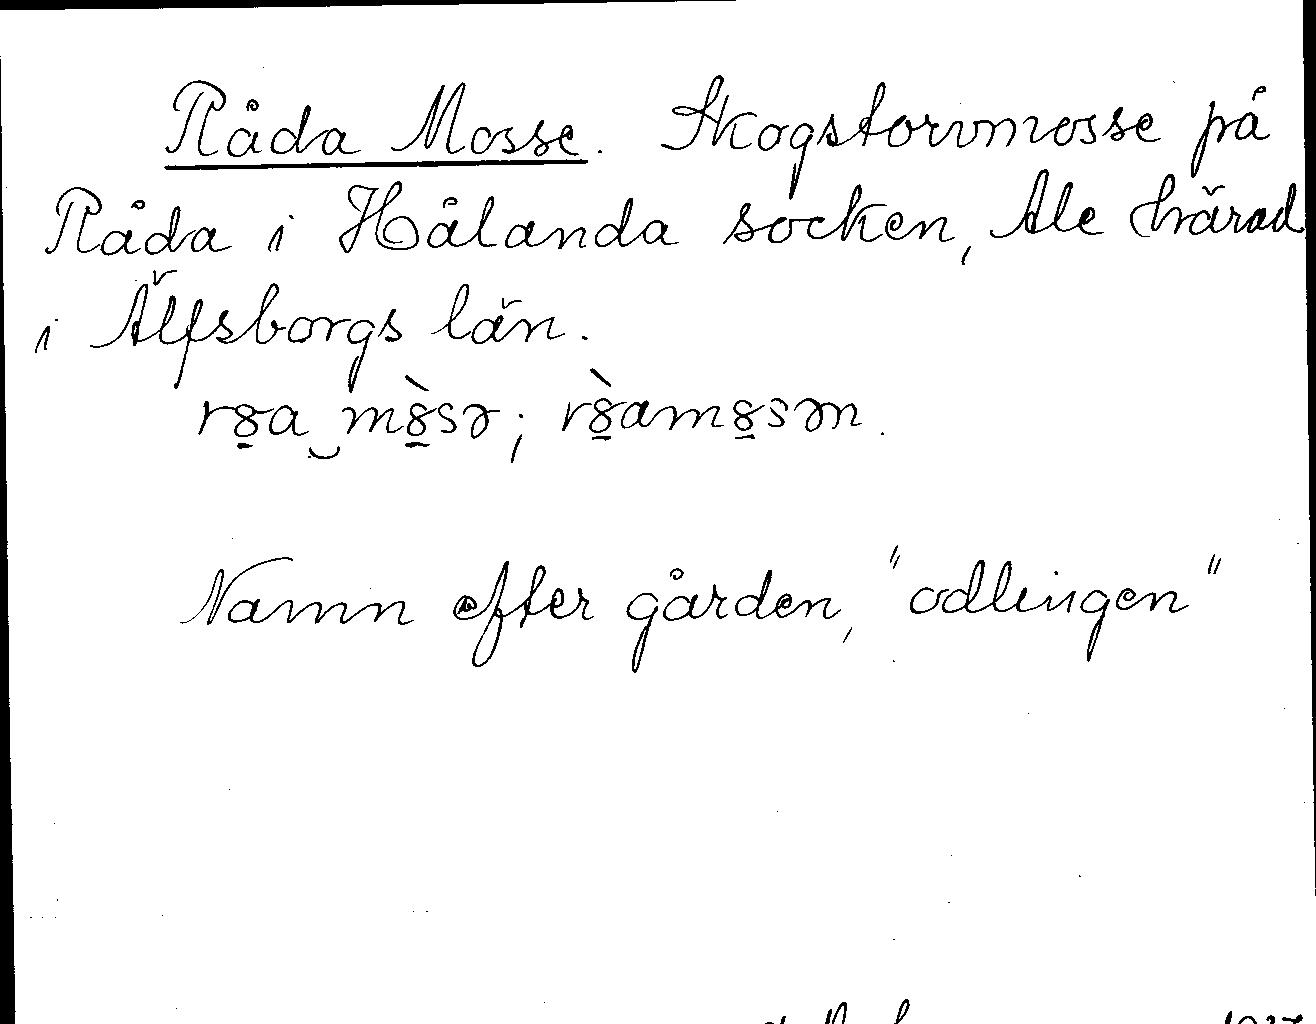 Råda Mosse. Skogstorvmosse på
Råda i Hålanda socken, Ale härad
i Älfsborgs län.
rȣ̱a‿mȣ̱̀sə; rȣ̱̀amȣ̱sən.
Namn efter gården, "odlingen"